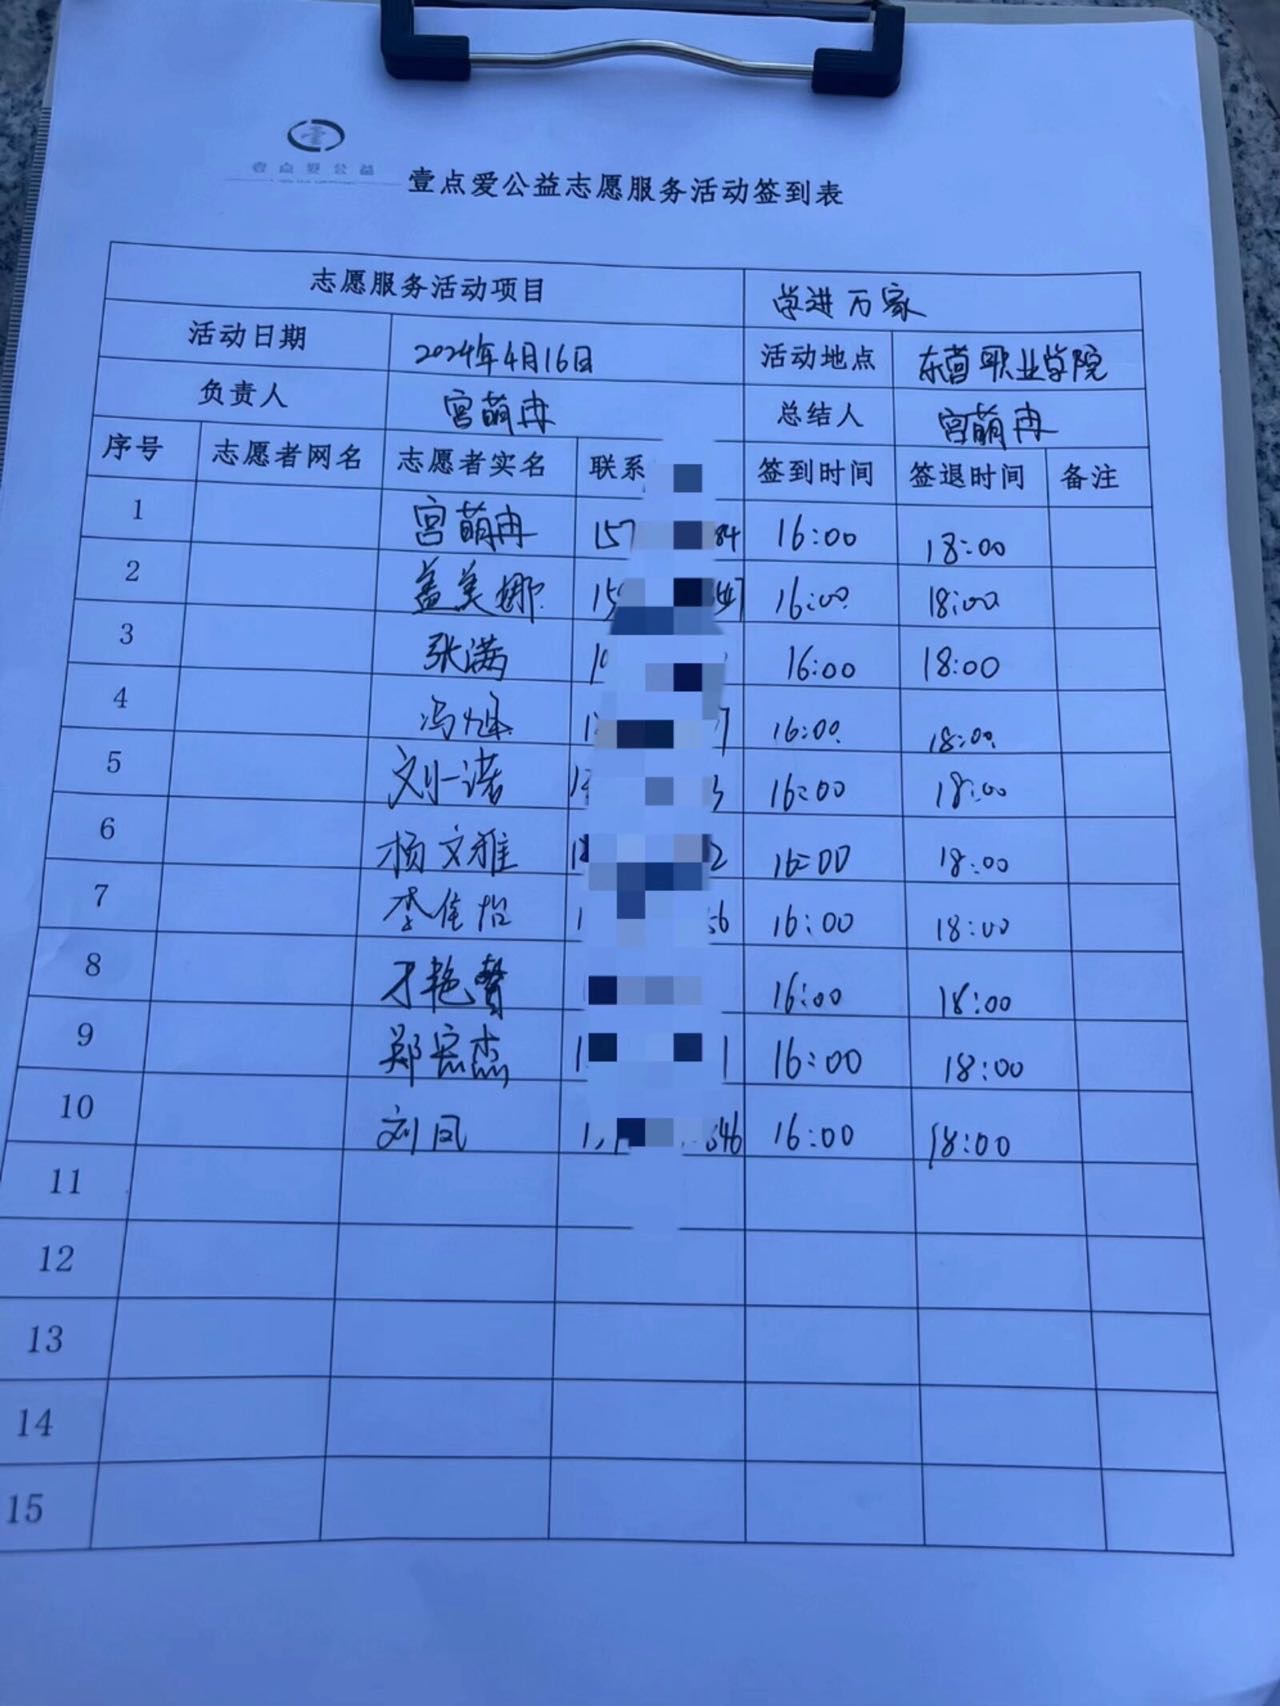 壹点爱公益
壹点爱公益志愿服务活动签到表
志愿服务活动项目 学进万家
活动日期 2024年4月16日 活动地点 东营职业学院
负责人 宫萌冉 总结人 宫萌冉
序号 志愿者网名 志愿者实名 联系 签到时间 签退时间 备注
1 宫萌冉 157 84 16:00 18:00
2 盖美娜 15 47 16:00 18:00
3 张满 16:00 18:00
4 冯 7 16:00 18:00
5 刘一诺 3 16:00 18:00
6 杨文雅 18 2 16:00 18:00
7 李佳怡 1 56 16:00 18:00
8 才艳 16:00 18:00
9 郑宏杰 1 1 16:00 18:00
10 刘凤 346 16:00 18:00
11
12
13
14
15